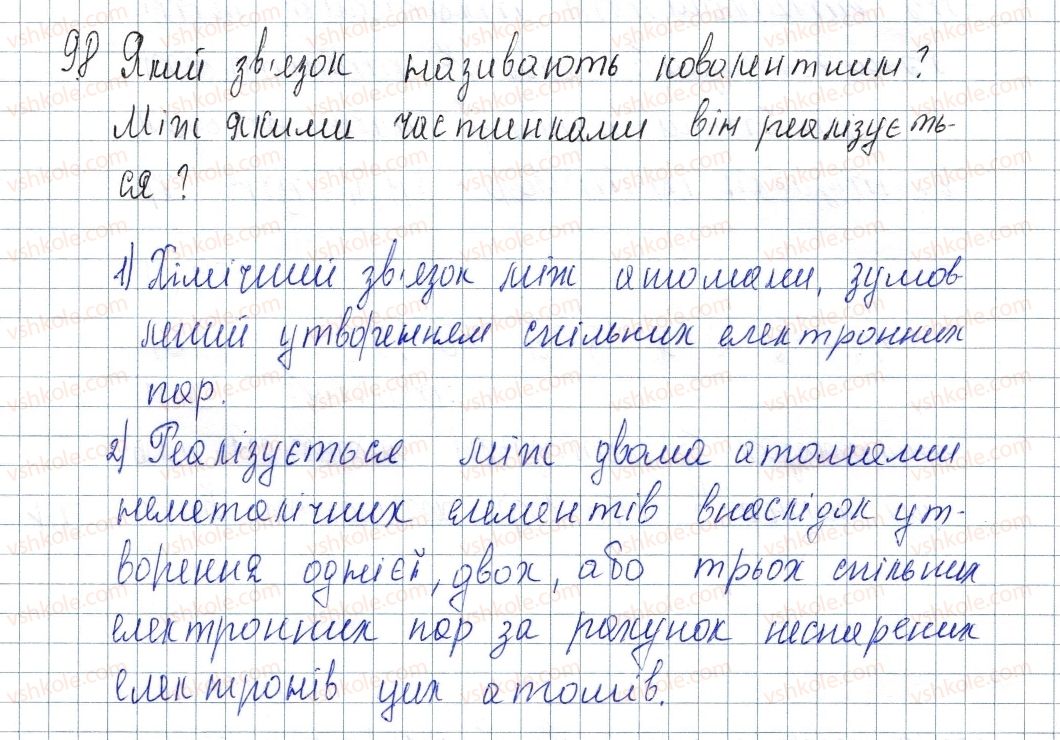 98 Який зв'язок називають ковалентним?
Між якими частинками він реалізуєть-
ся?
1) Хімічний зв'язок між атомами, зумов
лений утворенням спільних електронних
пар.
2) Реалізується між двома атомами
неметалічних елементів внаслідок ут-
ворення однієї, двох, або трьох спільних
електронних пар за рахунок неспарених
електронів цих атомів.